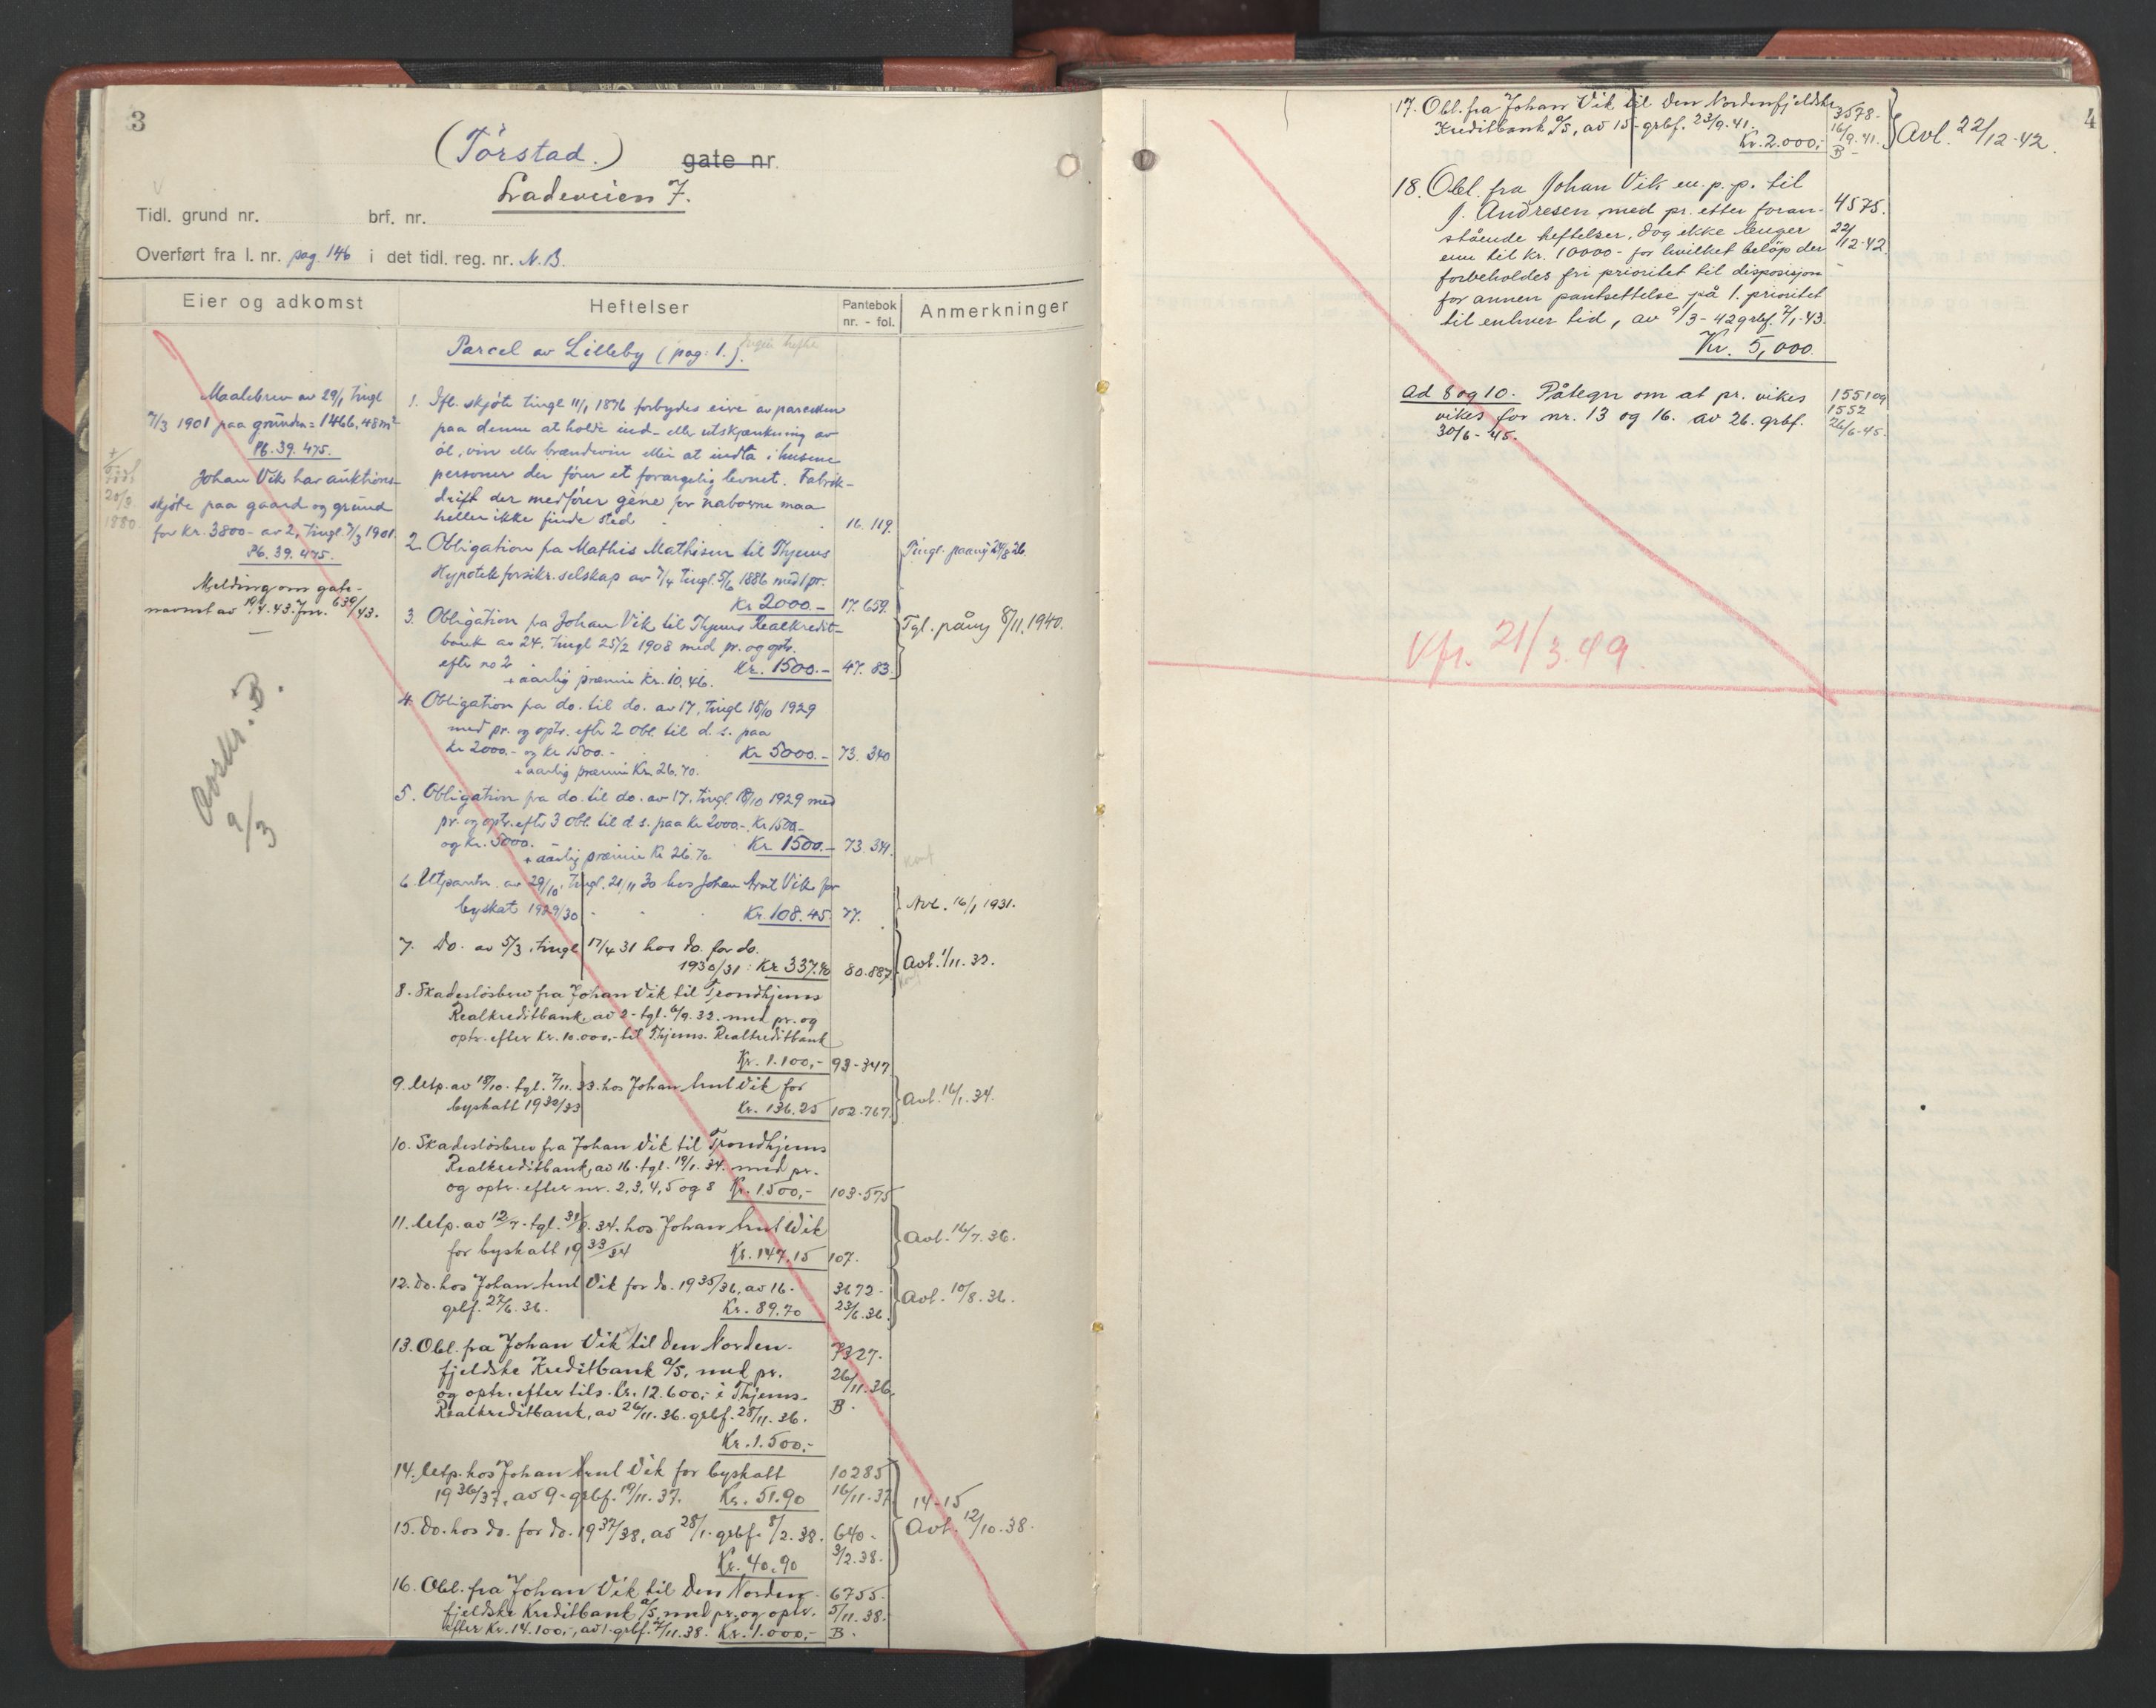 3
(Törstad.) gate nr.
Ladeveien 7.
Tidl. grund nr. brf. nr.
Overført fra l. nr. pag. 146 i det tidl. reg. nr. N.B.
Eier og adkomst
Heftelser
Pantebok
nr. - fol.
Anmerkninger
Maalebrev av 29/1 tingl
7/3 1901 paa grunden = 1466,48 m²
Pb. 39. 475.
Johan Vik har auktions-
skjöte paa gaard og grund
for Kr. 3800- av 2, tingl. 7/3 1901.
Pb. 39. 475.
20/8
1880.
Melding om gate-
navnet av 19/4.43. Jnr. 639/43.
Avskr. B.
9/3
Parcel av Lilleby (pag: 1.).
1. Ifl. skjöte tingl 11/1 1876 forbydes eire av parcellen
paa denne at holde ind- eller utskjænkning av
öl, vin eller brændevin eller at indta i husene
personer der förer et forargelig levnet. Fabrik-
drift der medförer gène for naboerne maa
heller ikke finde sted 16. 119.
2. Obligation fra Mathis Mathisen til Thjems
Hypotekforsikr. selskap av 7/4 tingl. 5/6 1886 med 1 pr.
Kr 2000.- 17. 659.
Tingl. paany 24/8 26.
3. Obligation fra Johan Vik til Thjems Realkredit-
bank av 24. tingl 25/2 1908 med pr. og optr.
efter no 2 Kr. 1500.- 47. 83.
+ aarlig præmie Kr. 10.46.
Tgl. påny 8/11.1940.
4. Obligation fra do. til do. av 17, tingl 18/10 1929
med pr. og optr. efter 2 obl. til d. s. paa
Kr 2000.- og Kr 1500.- Kr 5000.- 73. 340
+ aarlig præmie Kr. 26.70.
5. Obligation fra do. til do. av 17. tingl 18/10 1929 med
pr. og optr. efter 3 obl. til d. s. paa Kr 2000.-, Kr 1500.-
og Kr. 5000.- Kr 1500.- 73. 341.
+ aarlig præmie Kr 26.70.
6. Utpantn. av 29/10, tingl. 21/11 30 hos Johan Arnt Vik for
byskat 1929/30 Kr. 108.45. 77.
Avl. 16/1 1931.
7. Do. av 5/3. tingl 17/4 31 hos do. for do.
1930/31: Kr 337.90 80.887
Avl. 1/11.32.
8. Skadeslösbrev fra Johan Vik til Trondhjems
Realkreditbank, av 2- tgl. 6/9.32. med pr. og
optr. efter Kr. 10.000,- til Thjems. Realkreditbank
Kr. 1.100,- 93-347
9. Utp. av 18/10. tgl. 7/11.33. hos Johan Arnt Vik for
byskatt 1932/33 Kr. 136.25 102.767.
Avl. 16/1.34.
10. Skadeslösbrev fra Johan Vik til Trondhjems
Realkreditbank, av 16. tgl. 19/1.34. med pr.
og optr. efter nr. 2, 3, 4, 5 og 8 Kr. 1500,- 103-575
11. Utp. av 12/7. tgl. 31/8.34. hos Johan Arnt Vik
for byskatt 1933/34 Kr. 147.15 107.
Avl. 16/7.36.
12. Do. hos Johan Arnt Vik for do. 1935/36, av 16- 3672-
grbf. 27/6.36. Kr. 89.70 23/6.36.
Avl. 10/8.36.
13. Obl. fra Johan Vik til Den Norden- 7327.
fjeldske Kreditbank a/s, med pr. 26/11.36.
og optr. efter tils. Kr. 12.600,- i Thjems. B.
Realkreditbank, av 26/11.36. grbf. 28/11.36.
Kr. 1.500,-
14. Utp. hos Johan Arnt Vik for byskatt 10285
1936/37, av 9- grbf. 19/11.37. Kr. 51.90 16/11-37.
15. Do. hos do. for do. 1937/38, av 28/1- grbf. 8/2.38. 640-
Kr. 40.90 3/2.38.
14-15
Avl. 12/10.38.
16. Obl. fra Johan Vik til Den Norden- 6755.
fjeldske Kreditbank a/s, med pr. og optr. 5/11.38.
efter Kr. 14.100,-, av 1. grbf. 7/11.38. Kr. 1.000,- B.
4
17. Obl. fra Johan Vik til Den Nordenfjeldske 3578-
Kreditbank a/s, av 15- grbf. 23/9.41. 16/9.41.
Kr. 2.000,- B-
Avl. 22/12-42.
18. Obl. fra Johan Vik en. p. p. til
J. Andresen med pr. etter foran- 4575.
stående heftelser, dog ikke lenger 22/12-42
enn til kr. 10000- for hvilket belöp der
forbeholdes fri prioritet til disposisjon
for annen pantsettelse på 1. prioritet
til enhver tid, av 9/3-42 grbf. 7/1-43.
Kr. 5,000.
ad 8 og 10. Påtegn om at pr. vikes 1551 og
vikes for nr. 13 og 16. av 26. grbf. 1552
30/6-45. 26/6-45.
Kfr. 21/3.49.